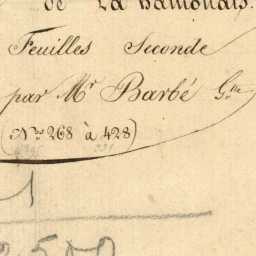 de La
Feuilles Seconde
par Mr Barbé Gtte
(Nos 268 à 428)
1
2500